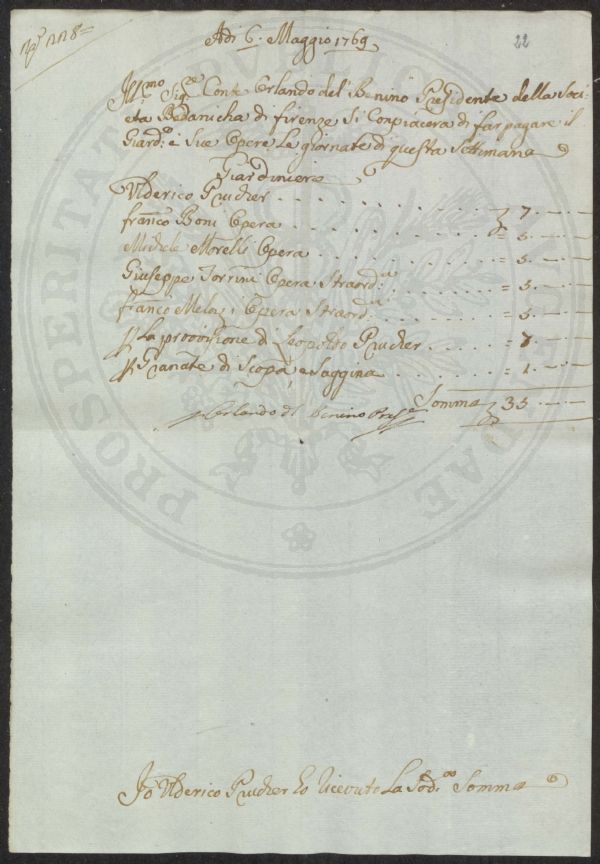 N.º 118=
Adi 6. Maggio 1769
22
Ill:mo Sig:re Conte Orlando del Benino Presidente della Soci=
eta Bodanicha di firenze Si Conpiacera di far pagare il
Giard:re e Sue Opere Le giornate di questa Settimana
Giardiniere
Ulderico Prucher . . . . . . . . 7. — —
Franco Boni Opera . . . . . . . = 5. — —
Michele Morelli Opera . . . . . . = 5. — —
Giuseppe Torrini Opera Straord:ria . . . . = 5. — —
Franco Melozi Opera Straord:ria . . . . = 5. — —
P La provvisione di Leopoldo Prucher . . . . = 7. — —
P Granate di Scopa, e Saggina . . . . . = 1. — —
Somma 35. — —
Orlando del Benino Pres.e
PROSPERITATI PVBLICAE AVGENDAE
Io Ulderico Prucher ho Riceuto La Sod:a Somma